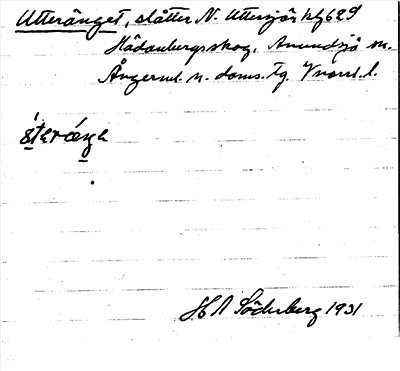 Utteränget, slåtter N. Uttersjön kg 629
Hädanbergsskog, Anundsjö sn.
Ångerml. n. doms. tg. Vnorrl. l.
H N Söderberg 1931